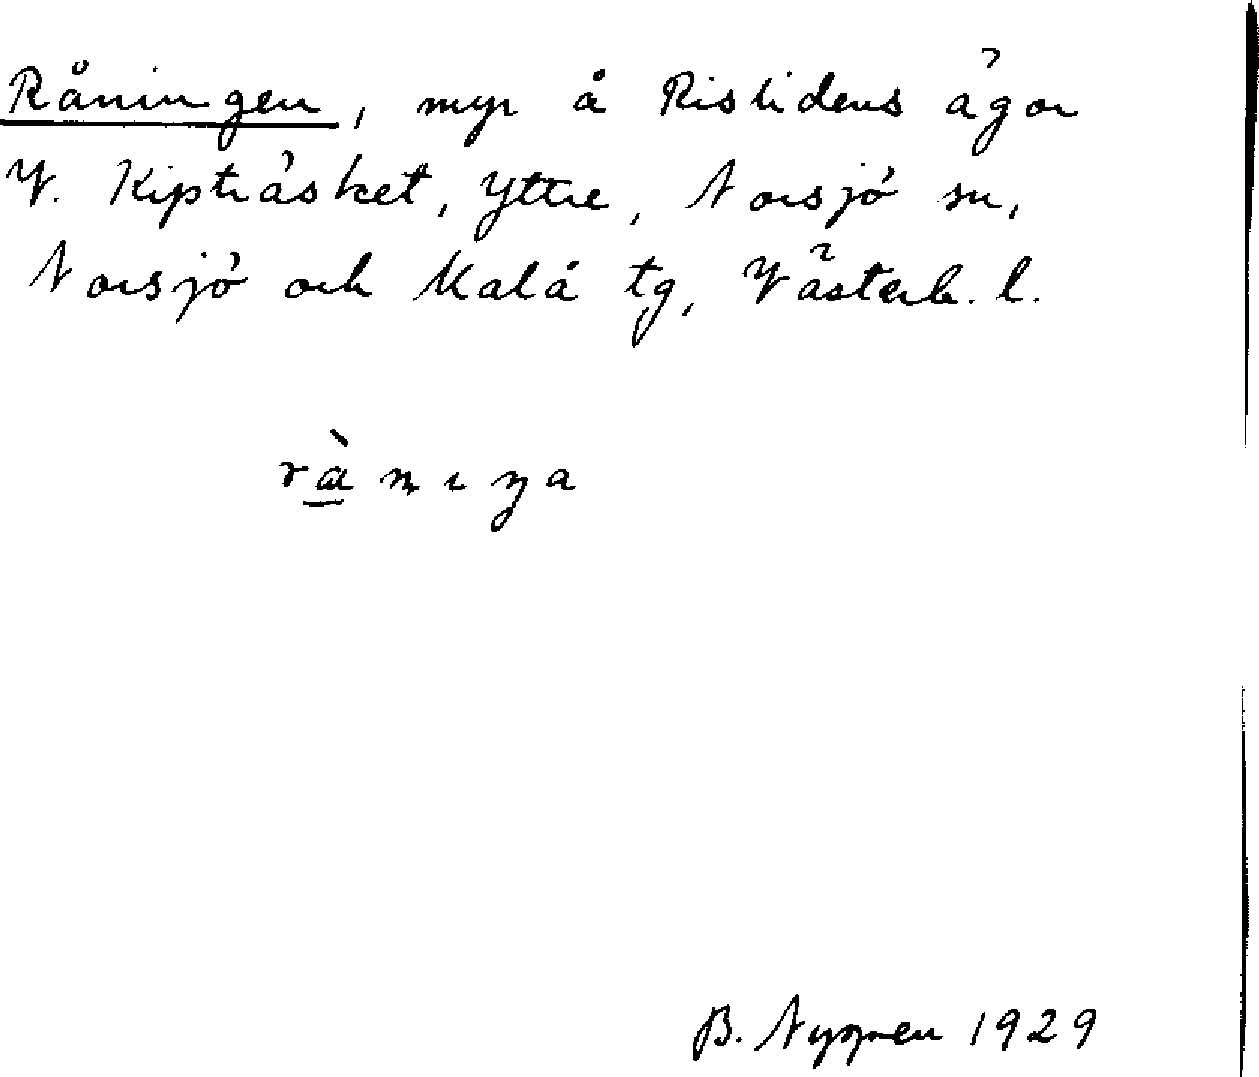 Råningen, myr å Rislidens ägor
V. Kipträsket, Yttre, Norsjö sn,
Norsjö och Malå tg, Västerb. l.
rà̱nıŋa
B. Nygren 1929